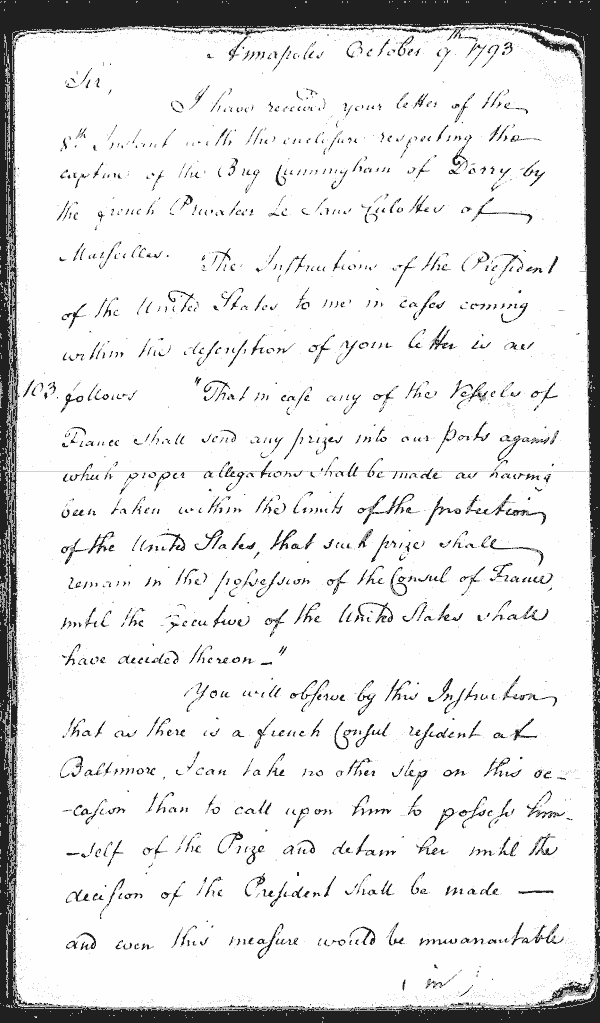 Annapolis October 9th 1793
Sir,
I have received your letter of the
8th Instant with the enclosure respecting the
capture of the Brig Cunningham of Derry by
the french Privateer Le Sans Culottes of
Marseilles. The Instructions of the President
of the United States to me in cases coming
within the description of your letter is as
103. follows "That in case any of the Vessels of
France shall send any prizes into our Ports against
which proper allegations shall be made as having
been taken within the limits of the protection
of the United States, that such prize shall
remain in the possession of the Consul of France,
until the Executive of the United States shall
have decided thereon—"
You will observe by this Instruction
that as there is a french Consul resident at
Baltimore, I can take no other step on this oc-
-casion than to call upon him to possess him-
-self of the Prize and detain her until the
decision of the President shall be made —
and even this measure would be unwarrantable
in